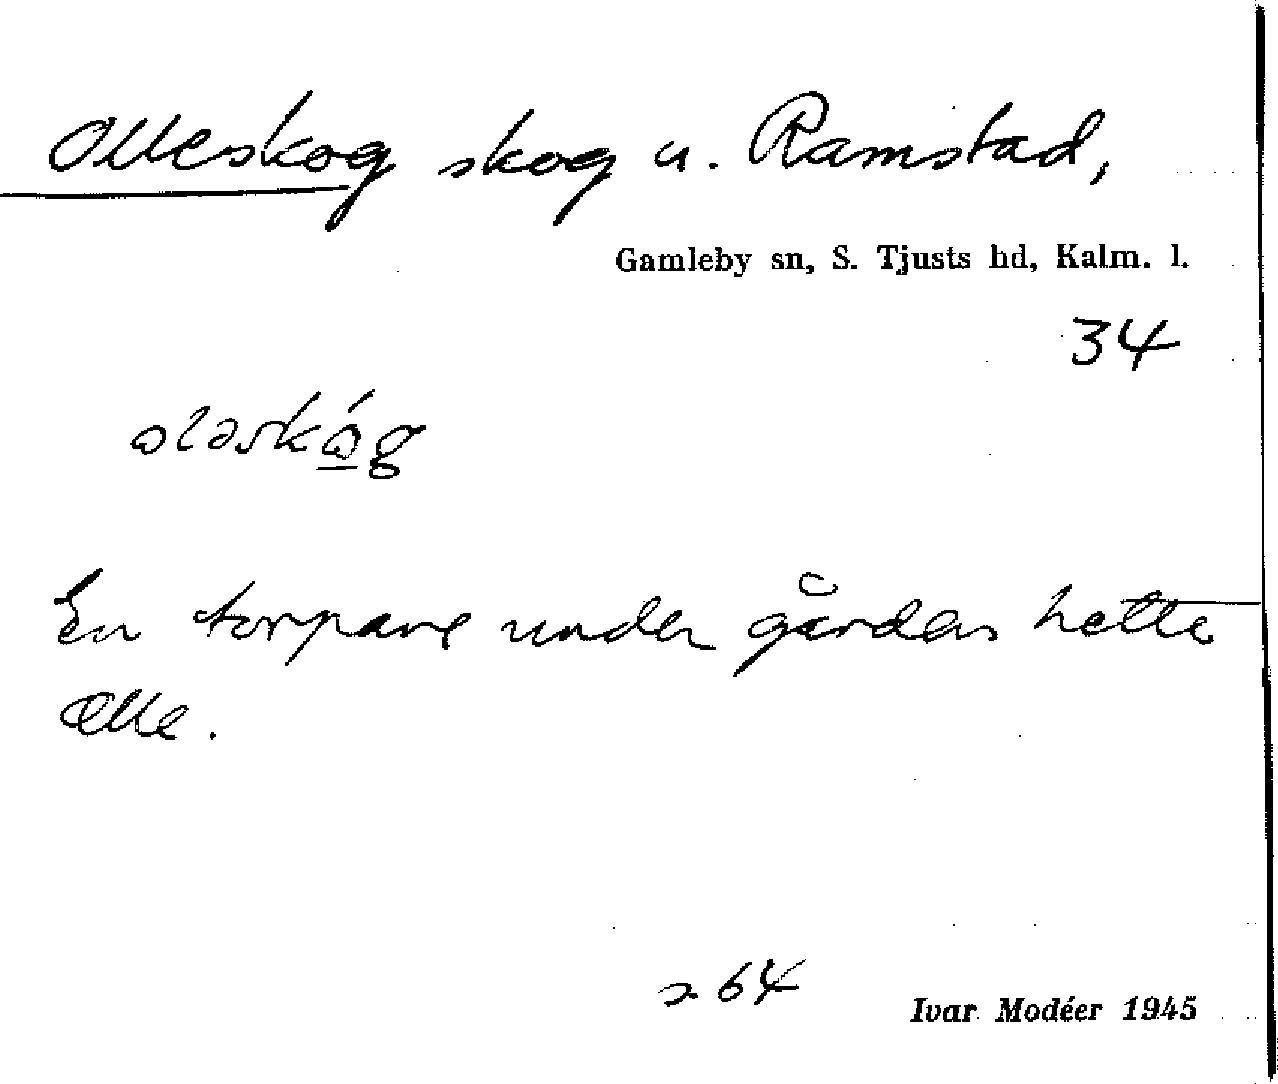 Olleskog skog u. Ramstad,
Gamleby sn, S. Tjusts hd, Kalm. l.
34
En torpare under gården hette
Olle.
64
Ivar Modéer 1945